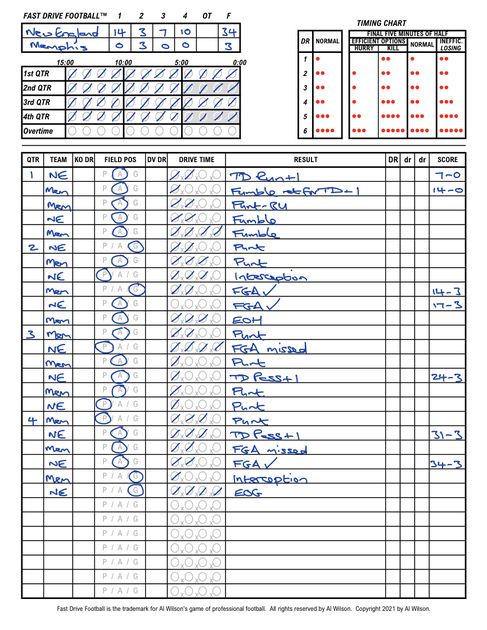 FAST DRIVE FOOTBALL™ 1 2 3 4 OT F
New England 14 3 7 10 34
Memphis 0 3 0 0 3
15:00 10:00 5:00 0:00
1st QTR
2nd QTR
3rd QTR
4th QTR
Overtime
TIMING CHART
DR NORMAL FINAL FIVE MINUTES OF HALF
EFFICIENT OPTIONS NORMAL INEFFIC.
HURRY KILL LOSING
1
2
3
4
5
6
QTR TEAM KO DR FIELD POS DV DR DRIVE TIME RESULT DR dr dr SCORE
1 NE P / A / G TD Run+1 7-0
Mem P / A / G Fumble ret for TD+1 14-0
Mem P / A / G Punt-BU
NE P / A / G Fumble
Mem P / A / G Fumble
2 NE P / A / G Punt
Mem P / A / G Punt
NE P / A / G Interception
Mem P / A / G FGA ✓ 14-3
NE P / A / G FGA ✓ 17-3
Mem P / A / G EOH
3 Mem P / A / G Punt
NE P / A / G FGA missed
Mem P / A / G Punt
NE P / A / G TD Pass+1 24-3
Mem P / A / G Punt
NE P / A / G Punt
4 Mem P / A / G Punt
NE P / A / G TD Pass+1 31-3
Mem P / A / G FGA missed
NE P / A / G FGA ✓ 34-3
Mem P / A / G Interception
NE P / A / G EOG
P / A / G
P / A / G
P / A / G
P / A / G
P / A / G
P / A / G
P / A / G
Fast Drive Football is the trademark for Al Wilson's game of professional football. All rights reserved by Al Wilson. Copyright 2021 by Al Wilson.